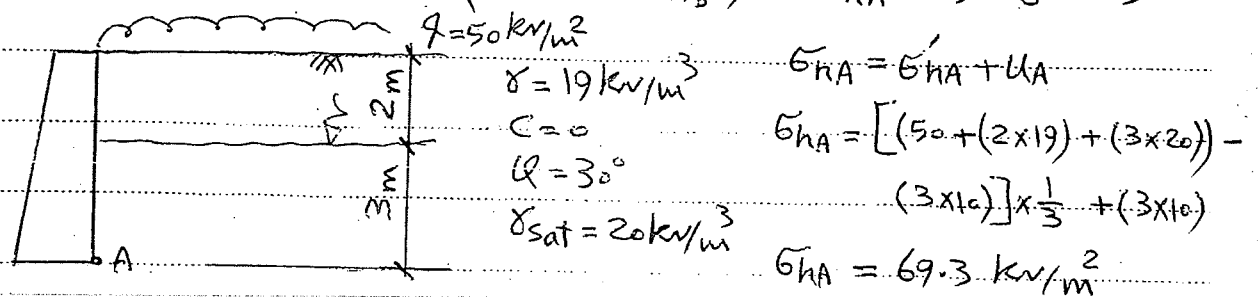 q=50 kN/m²
γ = 19 kN/m³
C=0
φ = 30°
γsat = 20 kN/m³
2m
3m
A
σhA = σ'hA + UA
σhA = [(50+(2×19)+(3×20)) –
(3×10)] × 1/3 + (3×10)
σhA = 69.3 kN/m²